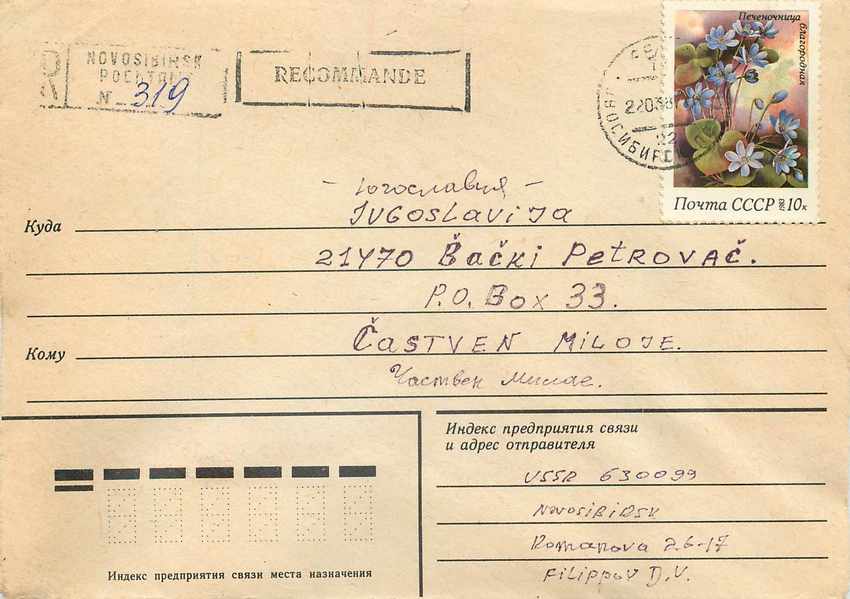 R
NOVOSIBIRSK
POCHTAMT
N 319
RECOMMANDE
Печеночница
благородная
Почта СССР 1983 10к
НОВОСИБИРСК
- Югославия -
Куда
JUGOSLAVIJA
21470 BAČKI PETROVAČ.
P.O. BOX 33.
Кому
ČASTVEN MILOJE.
Частвен Милое.
Индекс предприятия связи
и адрес отправителя
USSR 630099
Novosibirsk
Romanova 26-17
FILIPPOV D.V.
Индекс предприятия связи места назначения